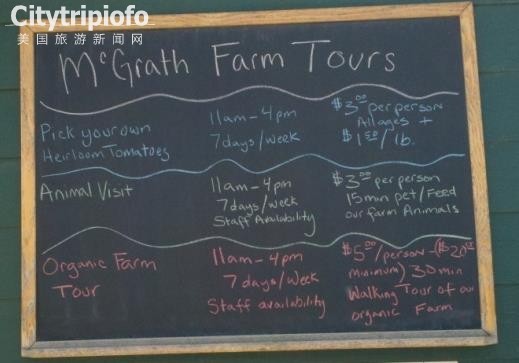 Citytripiofo
美国旅游新闻网
McGrath Farm Tours
Pick your own
Heirloom Tomatoes
11am-4pm
7days/week
$3.00 per person
All ages +
$1.50/lb.
Animal Visit
11am-4pm
7days/week
Staff Availability
$3.00 per person
15min pet/Feed
our farm Animals
Organic Farm
Tour
11am-4pm
7days/week
Staff availability
$5.00/person-($20.00
minimum) 30min
Walking Tour of our
organic Farm